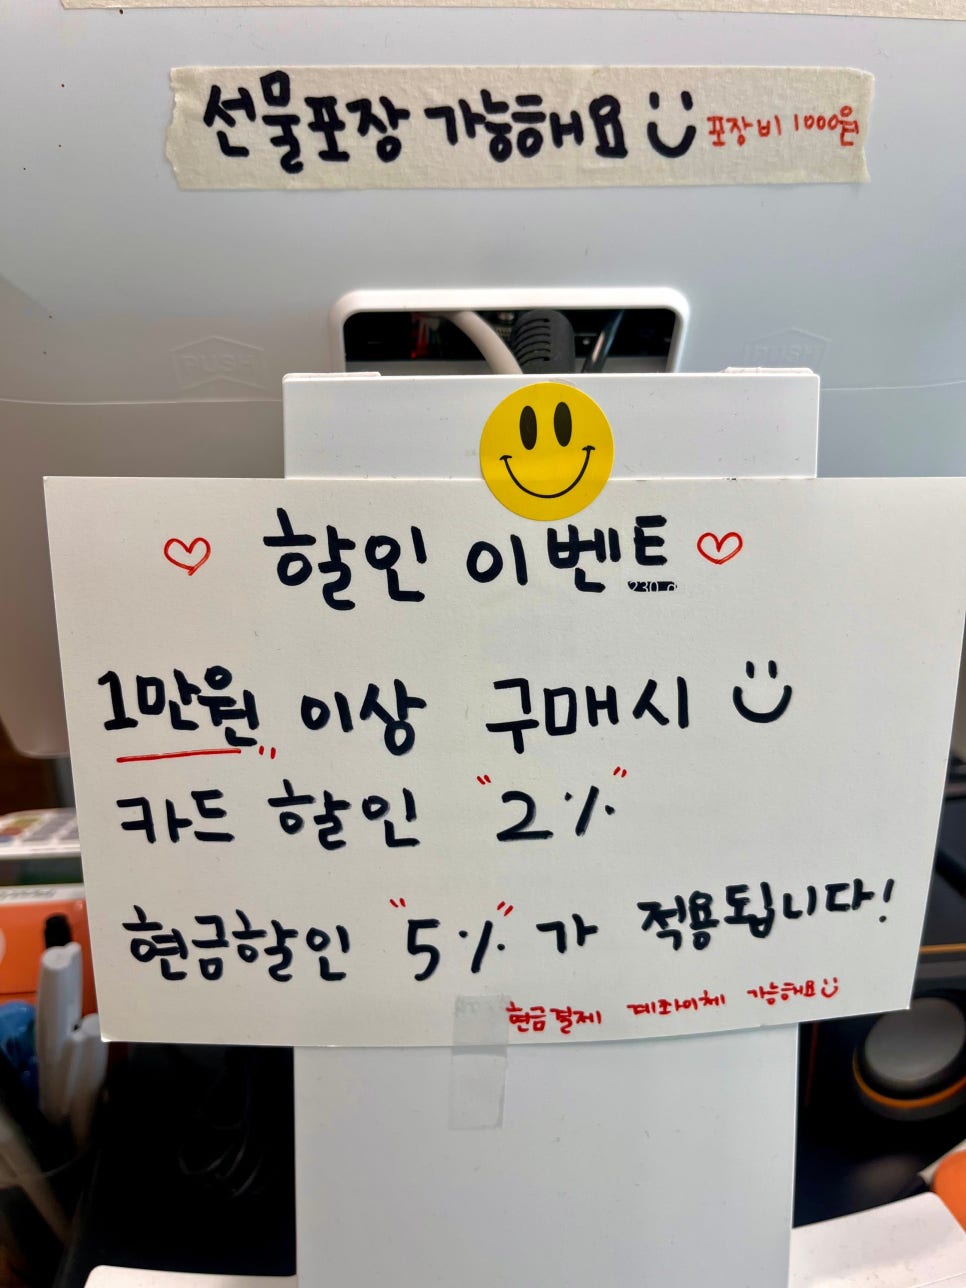 선물포장 가능해요 포장비 1000원
PUSH PUSH
할인 이벤트
1만원 이상 구매시
카드 할인 "2%"
현금할인 "5%"가 적용됩니다!
현금결제 계좌이체 가능해요